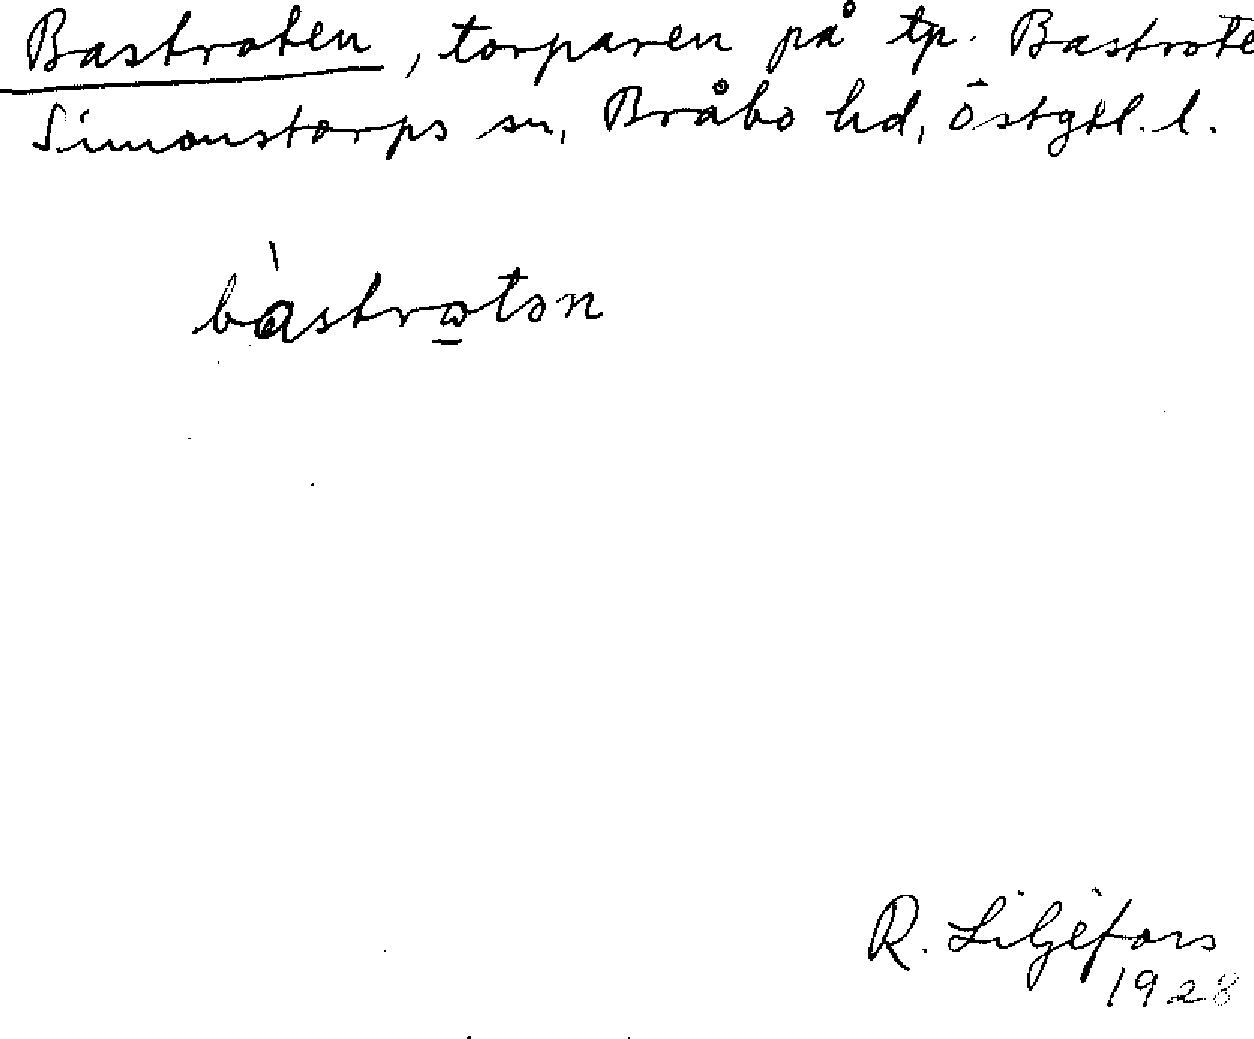 Bastroten, torparen på tp. Bastrote
Simonstorps sn, Bråbo hd, Östgtl. l.
bàstrωtən
R. Liljefors
1928